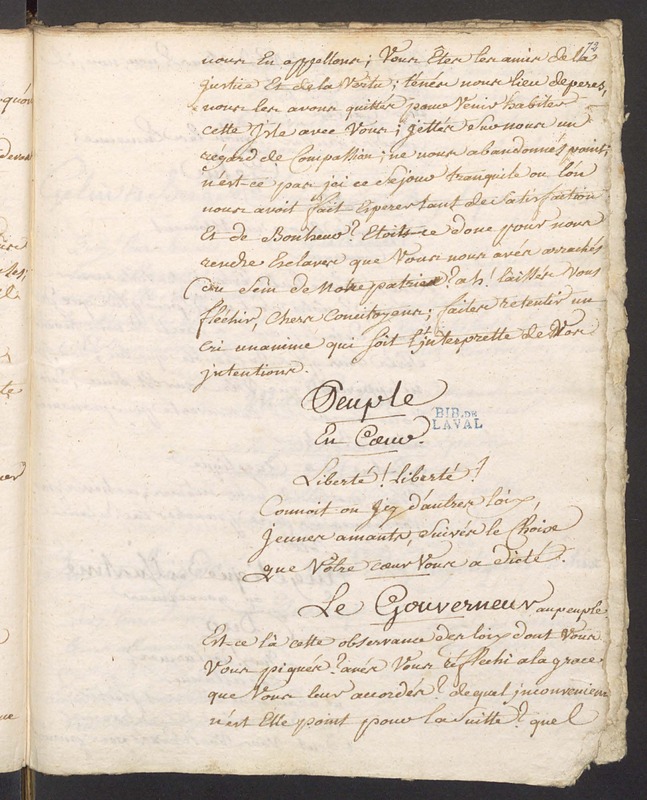 72
nous En appellons; Vous Êtes les amis de la
justice Et de la Vertu; tenés nous lieu de peres,
nous les avons quittés pour Venir habiter
cette Isle avec Vous; jettés Sur nous un
régard de Compassion; ne nous abandonnés point;
n'est-ce pas ici ce Séjour tranquile ou l'on
nous avoit fait Esperer tant de Satisfaction
Et de Bonheur? Etoit-ce donc pour nous
rendre Esclaves que Vous nous avés arrachés
du Sein de Notre patrie? ah! laissés Vous
fléchir, chers Concitoyens; faites retentir un
cri unanime qui soit l'interprette de Vos
intentions.
Peuple
En Cœur.
BIB. DE
LAVAL
Liberté! Liberté!
Connoit on icy d'autres loix,
jeunes amants, Suivés le Choix
que Votre cœur Vous a dicté.
Le Gouverneur au peuple.
Est-ce là cette observance des loix dont Vous
Vous piqués? avés Vous réfléchi a la grace
que Vous leur accordés? de quel inconvenient
n'est Elle point pour la Suitte? quel